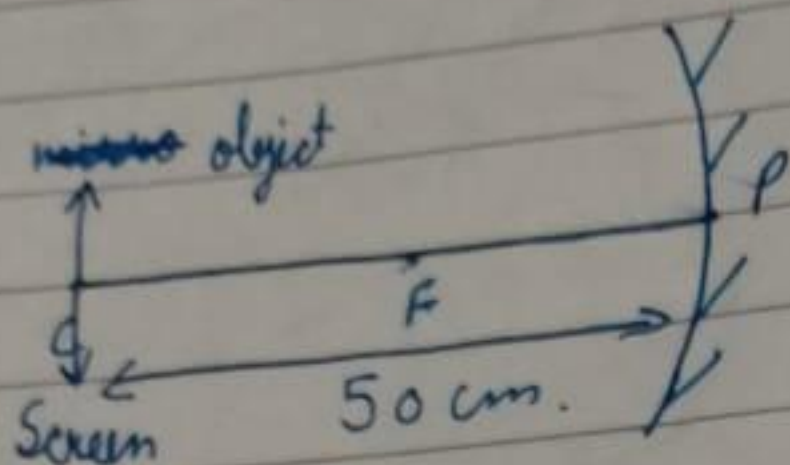 object
P
F
C
50 cm.
Screen